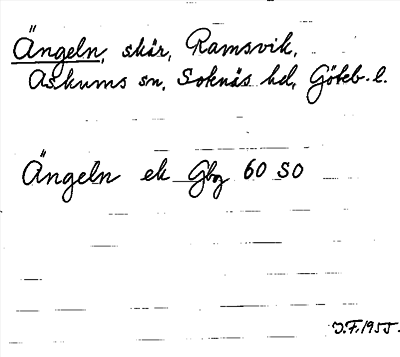 Ängeln, skär, Ramsvik,
Askums sn, Sotenäs hd, Göteb. l.
Ängeln ek Gbg 60 SO
J.F. 1955.